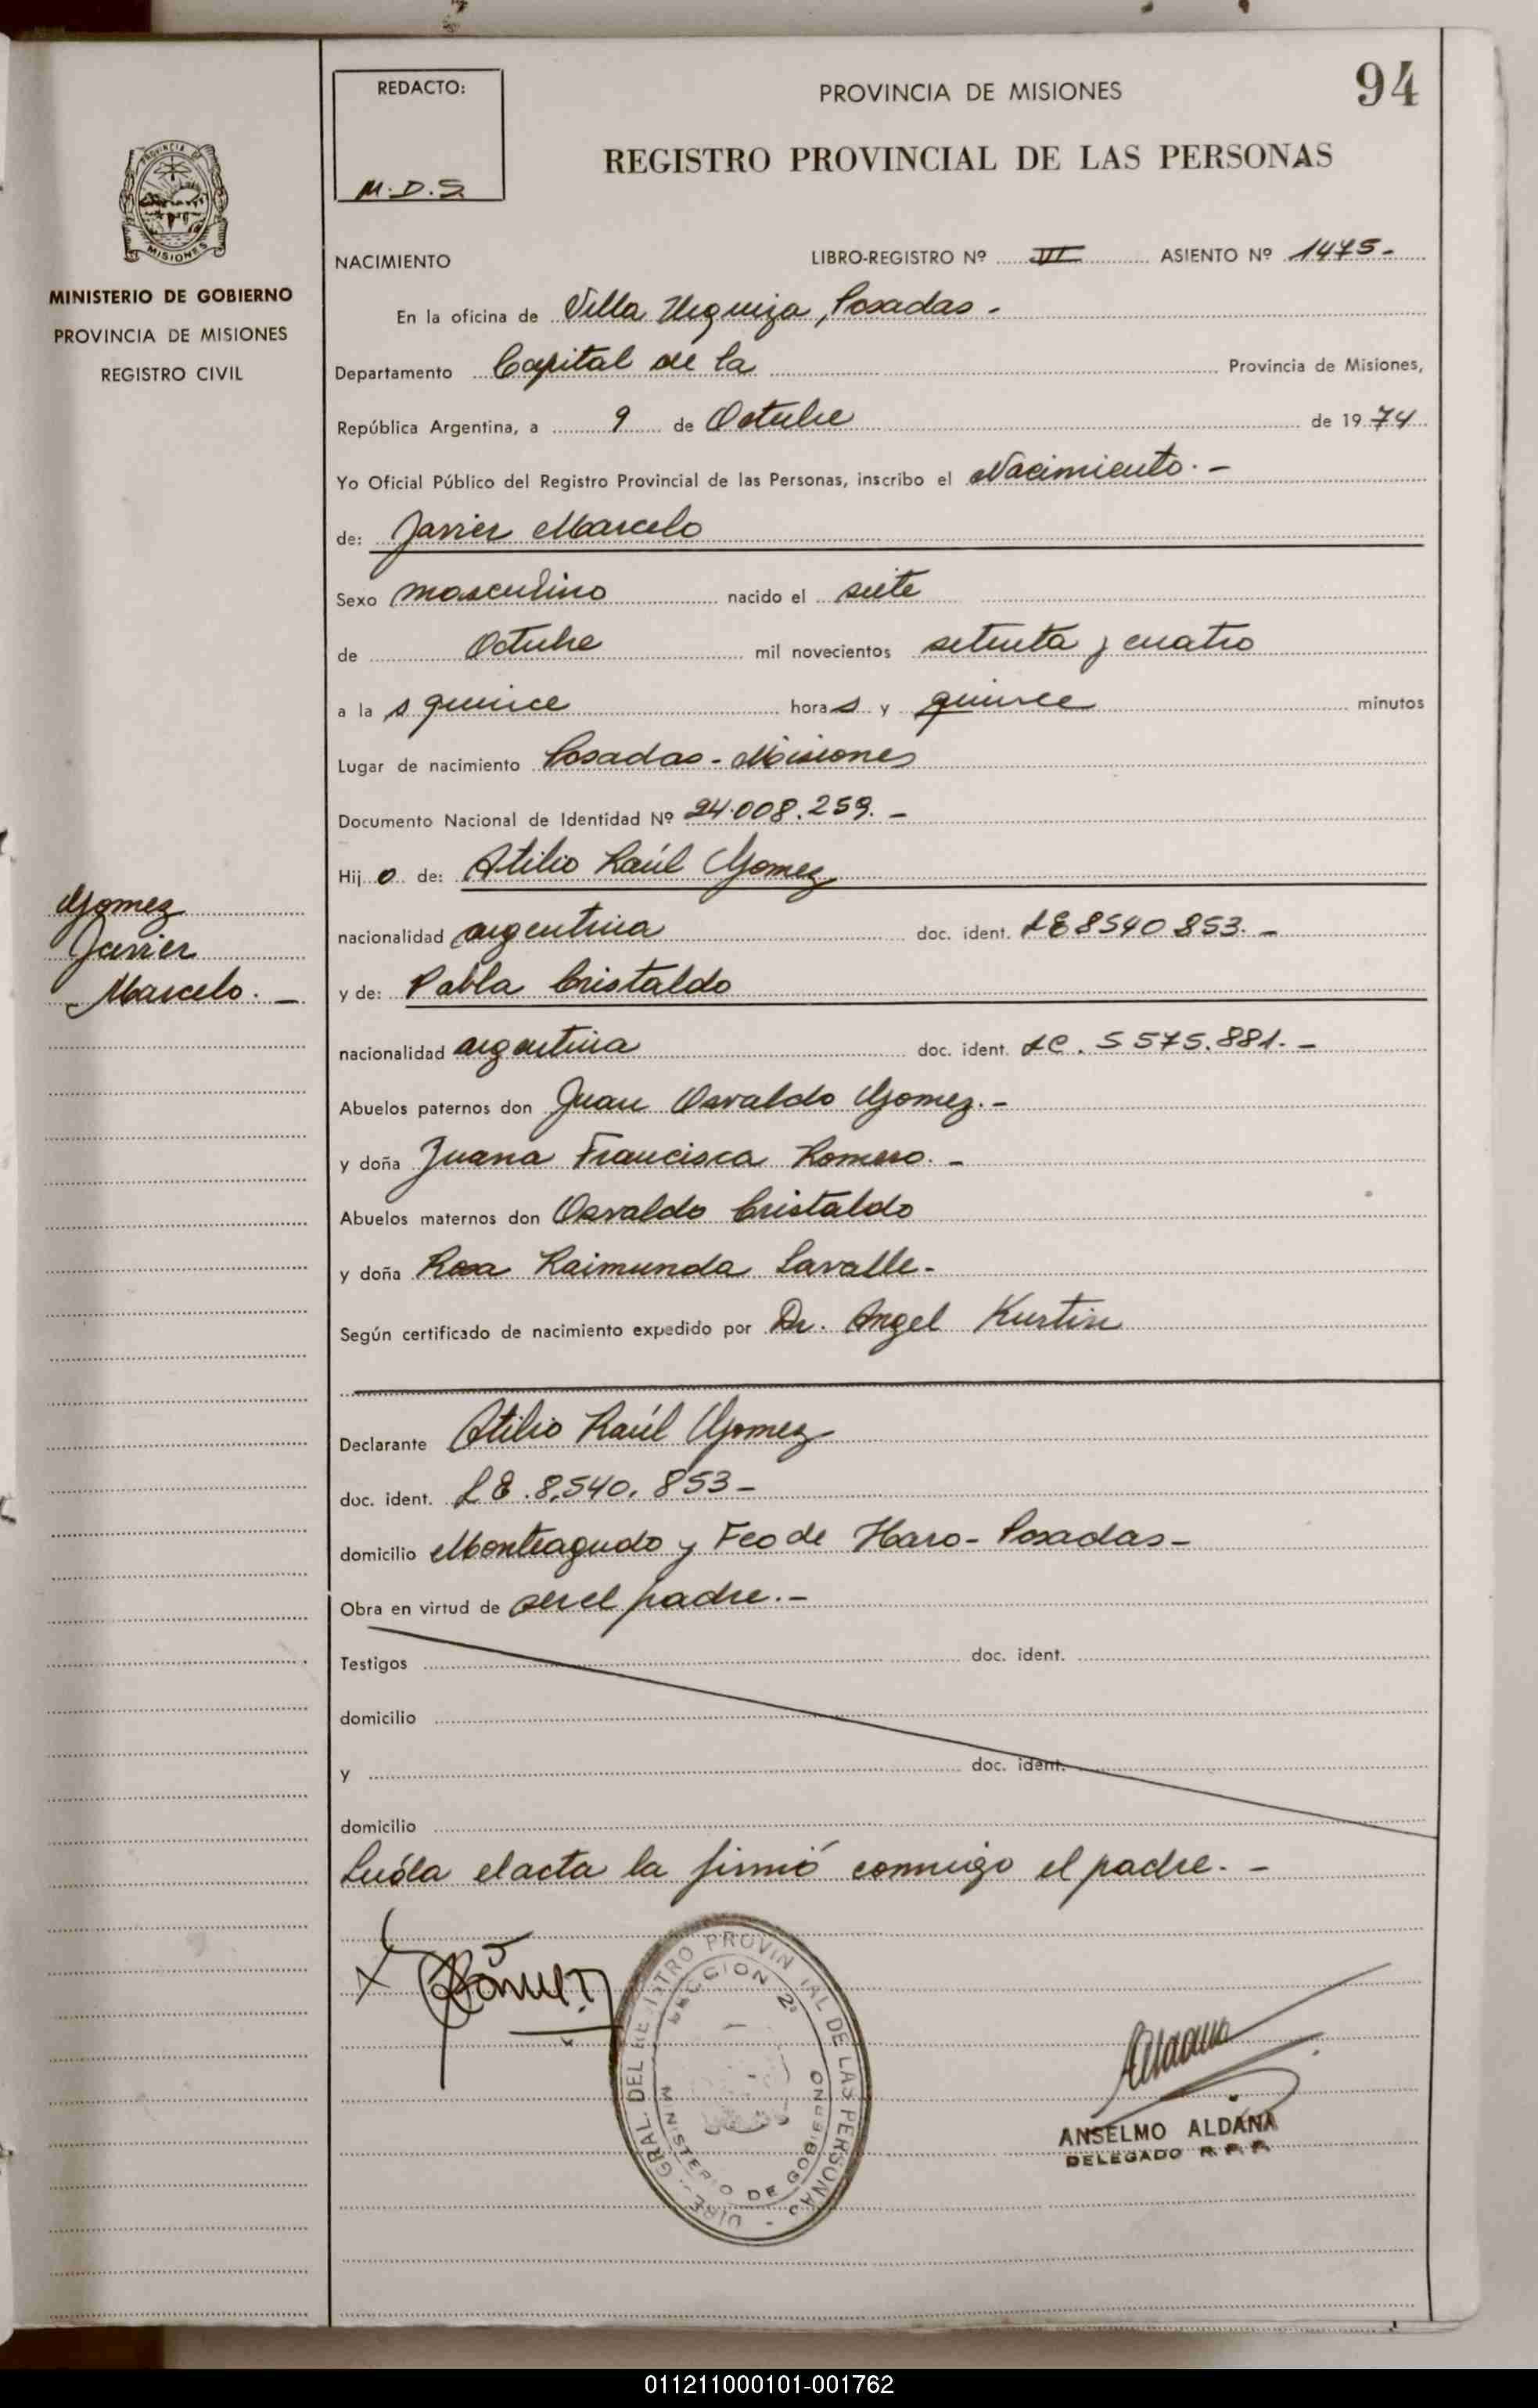 94
REDACTO:
M.D.S.
PROVINCIA DE MISIONES
REGISTRO PROVINCIAL DE LAS PERSONAS
PROVINCIA DE
MISIONES
MINISTERIO DE GOBIERNO
PROVINCIA DE MISIONES
REGISTRO CIVIL
NACIMIENTO LIBRO-REGISTRO Nº VI ASIENTO Nº 1475-
En la oficina de Villa Urquiza, Posadas-
Departamento Capital de la Provincia de Misiones,
República Argentina, a 9 de Octubre de 1974
Yo Oficial Público del Registro Provincial de las Personas, inscribo el Nacimiento.-
de: Javier Marcelo
Sexo masculino nacido el siete
de Octubre mil novecientos setenta y cuatro
a las quince horas y quince minutos
Lugar de nacimiento Posadas-Misiones
Documento Nacional de Identidad Nº 24.008.259.-
Hijo de: Atilio Raúl Gomez
nacionalidad argentina doc. ident. LE 8540853.-
y de: Pabla Cristaldo
nacionalidad argentina doc. ident. LC. 5575.881.-
Gomez
Javier
Marcelo.-
Abuelos paternos don Juan Osvaldo Gomez.-
y doña Juana Francisca Romero.-
Abuelos maternos don Osvaldo Cristaldo
y doña Rosa Raimunda Lavalle-
Según certificado de nacimiento expedido por Dr. Angel Kurtin
Declarante Atilio Raúl Gomez
doc. ident. LE.8.540.853-
domicilio Monteagudo y Fco de Haro-Posadas-
Obra en virtud de ser el padre.-
Testigos doc. ident.
domicilio
y doc. ident.
domicilio
Leída el acta la firmó conmigo el padre.-
DIREC. GRAL. DEL REGISTRO PROVINCIAL DE LAS PERSONAS
SECCION 2ª
MINISTERIO DE GOBIERNO
ANSELMO ALDANA
DELEGADO R. P. P.
011211000101-001762